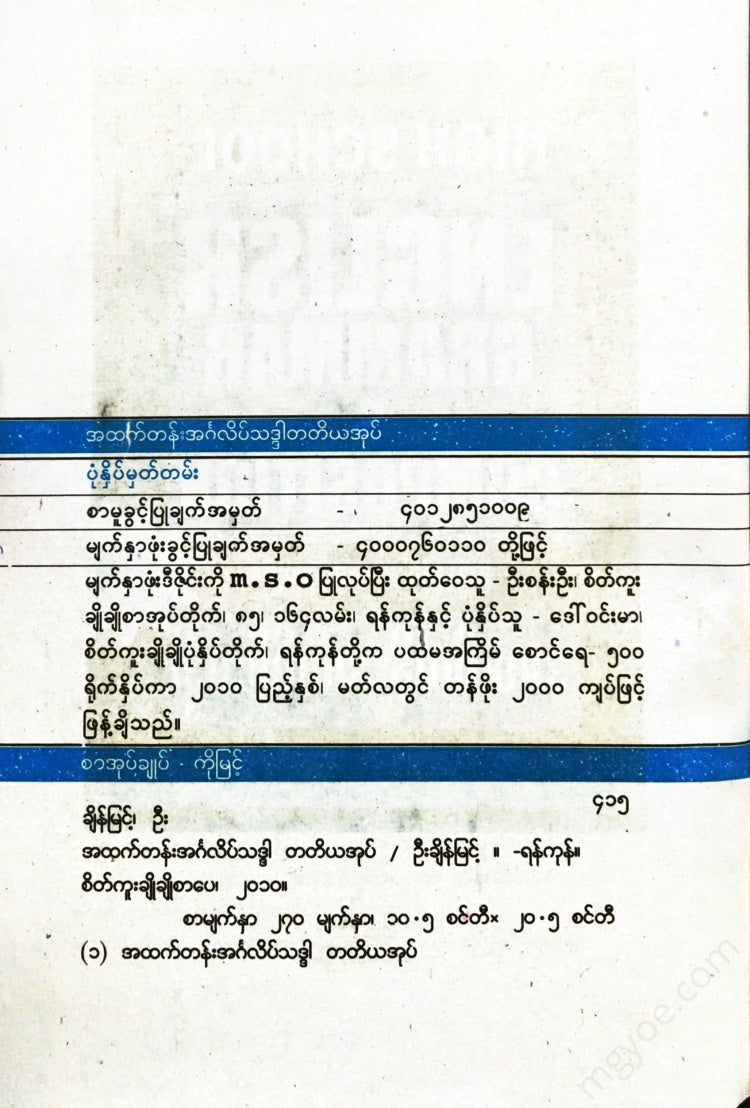 အထက်တန်းအင်္ဂလိပ်သဒ္ဒါတတိယအုပ်
ပုံနှိပ်မှတ်တမ်း
စာမူခွင့်ပြုချက်အမှတ် - ၄၀၁၂၈၅၁၀၀၉
မျက်နှာဖုံးခွင့်ပြုချက်အမှတ် - ၄၀၀၀၇၆၀၁၁၀ တို့ဖြင့်
မျက်နှာဖုံးဒီဇိုင်းကို m.s.o ပြုလုပ်ပြီး ထုတ်ဝေသူ - ဦးစန်းဦး၊ စိတ်ကူး
ချိုချိုစာအုပ်တိုက်၊ ၈၅၊ ၁၆၄လမ်း၊ ရန်ကုန်နှင့် ပုံနှိပ်သူ - ဒေါ်ဝင်းမာ၊
စိတ်ကူးချိုချိုပုံနှိပ်တိုက်၊ ရန်ကုန်တို့က ပထမအကြိမ် စောင်ရေ- ၅၀၀
ရိုက်နှိပ်ကာ ၂၀၁၀ ပြည့်နှစ်၊ မတ်လတွင် တန်ဖိုး ၂၀၀၀ ကျပ်ဖြင့်
ဖြန့်ချိသည်။
စာအုပ်ချုပ် - ကိုမြင့်
၄၁၅
ချိန်မြင့်၊ ဦး
အထက်တန်းအင်္ဂလိပ်သဒ္ဒါ တတိယအုပ် / ဦးချိန်မြင့် ။ -ရန်ကုန်။
စိတ်ကူးချိုချိုစာပေ၊ ၂၀၁၀။
စာမျက်နှာ ၂၇၀ မျက်နှာ၊ ၁၀.၅ စင်တီ× ၂၀.၅ စင်တီ
(၁) အထက်တန်းအင်္ဂလိပ်သဒ္ဒါ တတိယအုပ်
mgyoe.com